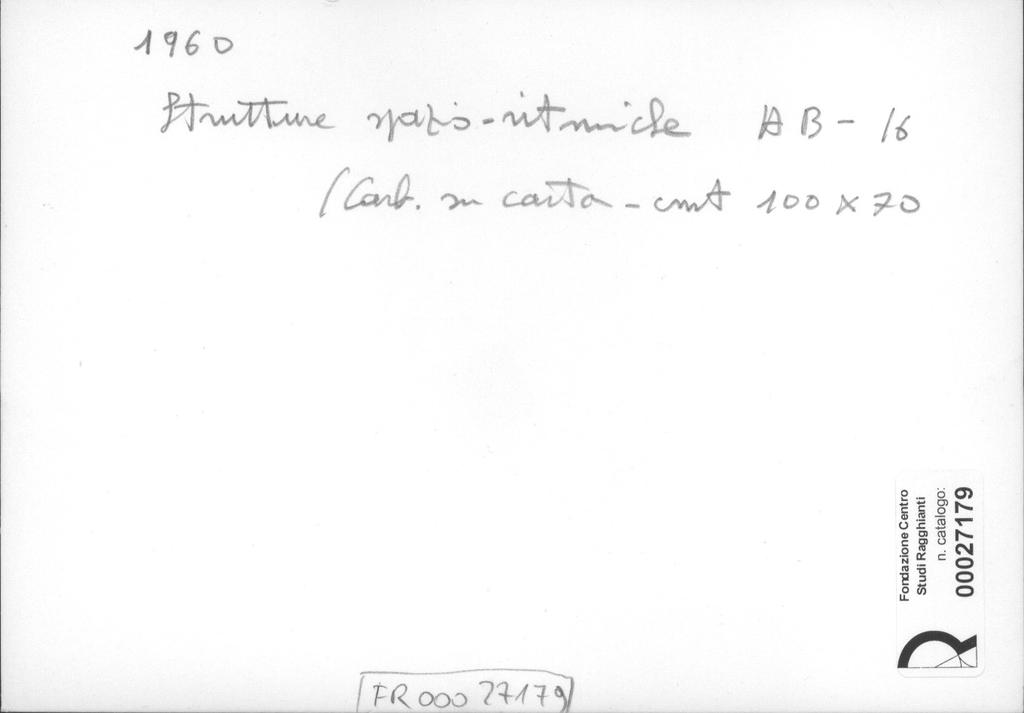 1960
Strutture spazio-ritmiche AB-16
(Carb. su carta - cmt 100 x 70
Fondazione Centro
Studi Ragghianti
n. catalogo:
00027179
FR000 27179